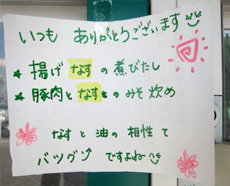 いつも ありがとうございます
★ 揚げなすの煮びたし
★ 豚肉となすのみそ炒め
なすと油の相性て
バツグン ですよね